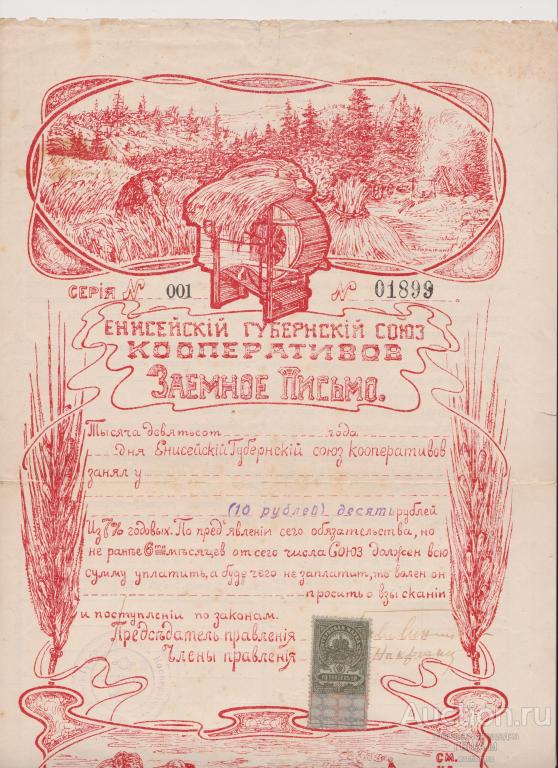 СЕРІЯ № 001 № 01899
ЕНИСЕЙСКІЙ ГУБЕРНСКІЙ СОЮЗ
КООПЕРАТИВОВ
ЗАЕМНОЕ ПИСЬМО.
Тысяча девятьсот года
дня Енисейскій Губернскій союз кооперативов
занял у
(10 рублей) десять рублей
Из 7% годовых. По пред'явленіи сего обязательства, но
не ранѣе 6ти мѣсяцев от сего числа СОЮЗ должен всю
сумму уплатить, а буде чего не заплатит, то волен он
просить о взысканіи
и поступленіи по законам.
Предсѣдатель правленія
Члены правленія
Auction.ru
СМ.